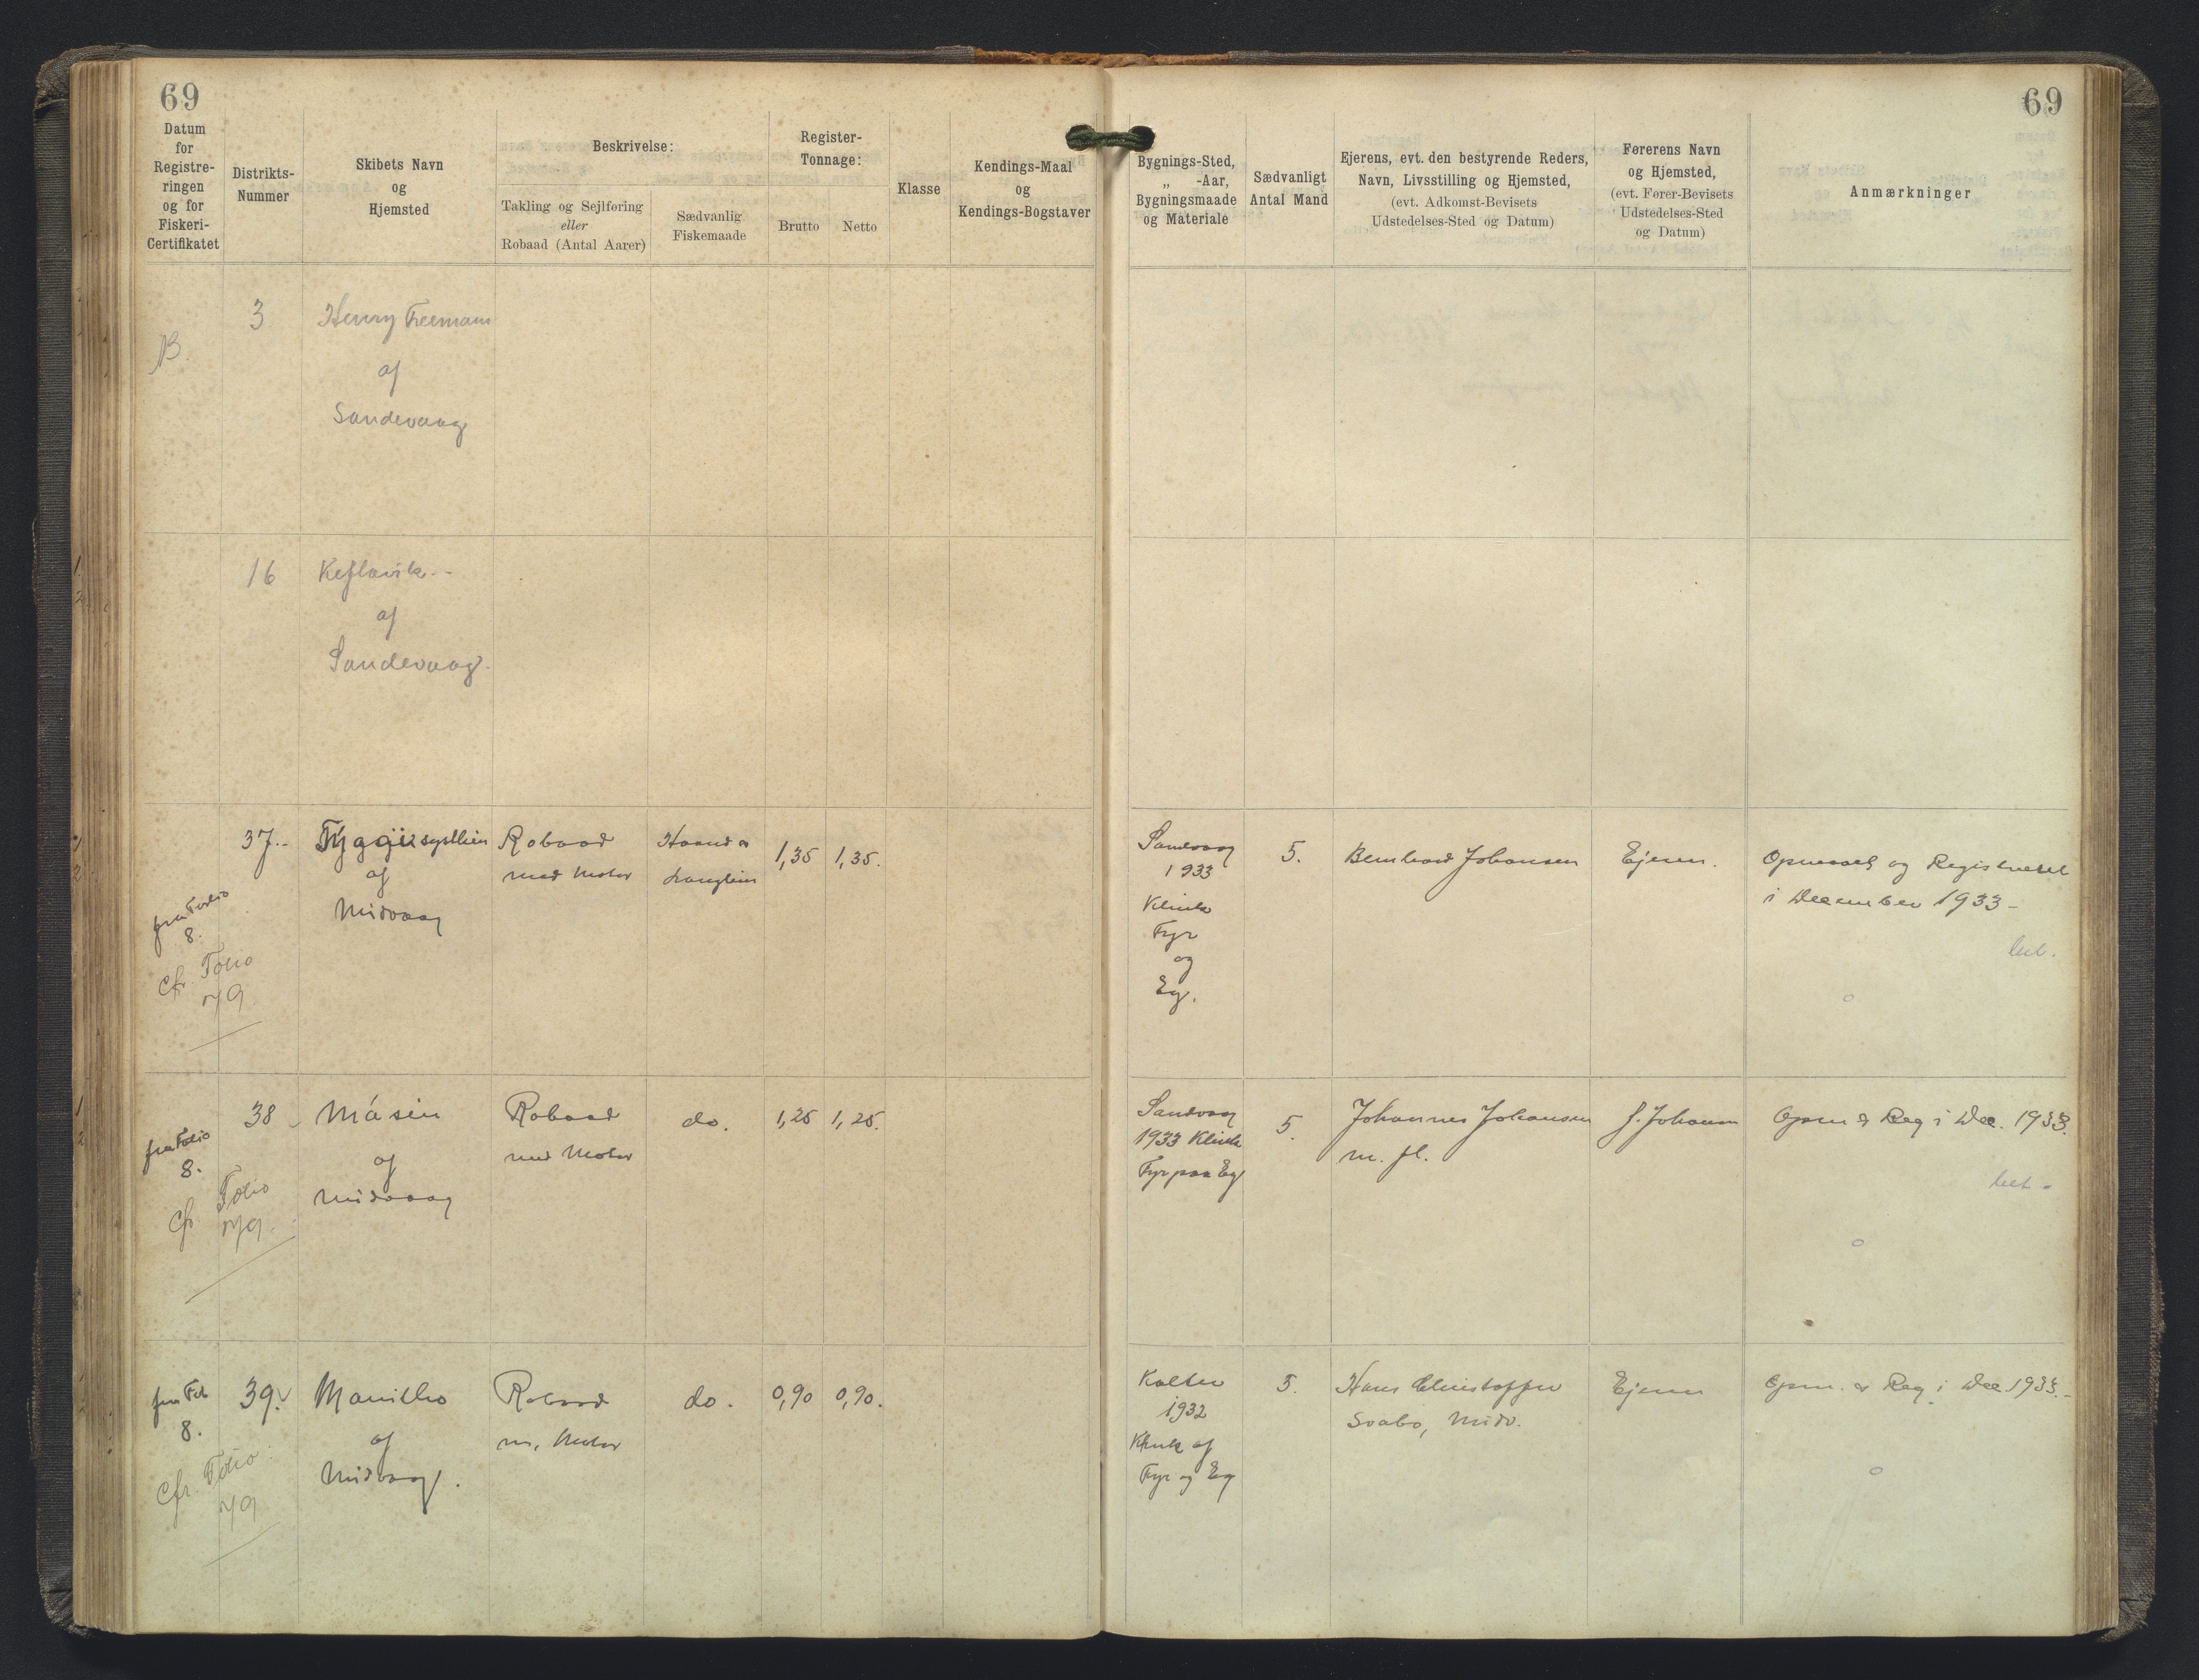 69
69
Datum
for
Registre-
ringen
og for
Fiskeri-
Certifikatet
Distrikts-
Nummer
Skibets Navn
og
Hjemsted
Beskrivelse:
Takling og Sejlføring
eller
Robaad (Antal Aarer)
Sædvanlig
Fiskemaade
Register-
Tonnage:
Brutto
Netto
Klasse
Kendings-Maal
og
Kendings-Bogstaver
Bygnings-Sted,
„ -Aar,
Bygningsmaade
og Materiale
Sædvanligt
Antal Mand
Ejerens, evt. den bestyrende Reders,
Navn, Livsstilling og Hjemsted,
(evt. Adkomst-Bevisets
Udstedelses-Sted og Datum)
Førerens Navn
og Hjemsted,
(evt. Fører-Bevisets
Udstedelses-Sted
og Datum)
Anmærkninger
B.
3
Henry Freemann
af
Sandevaag
16
Keflavik.-
af
Sandevaag.
fra Folio
8.
cfr. Folio
79.
37.-
af
Midvaag
Robaad
med Motor
Haand &
Langlein
1,35
1,35.
Sandvaag
1933
Klink
Fyr
og
Eg.
5.
Bernhard Johansen
Ejeren.
Opmaalt og Registreret
i December 1933-
bet.
fra Folio
8.
cfr Folio
79.
38
Másin
af
Midvaag
Robaad
med Motor
do.
1,25
1,25.
Sandvaag
1933 Klink
Fyr paa Eg
5.
Johannes Johansen
m. fl.
J. Johansen
Opm & Reg i Dec. 1933.
bet.
fra Fol
8.
cfr. Folio
79
39.
Manilho
af
Midvaag.
Robaad
m. Motor
do.
0,90
0,90.
Kolter
1932
Klink af
Fyr og Eg
3.
Hans Christoffer
Svabo, Midv.
Ejeren
Opm. & Reg. i Dec 1933.-